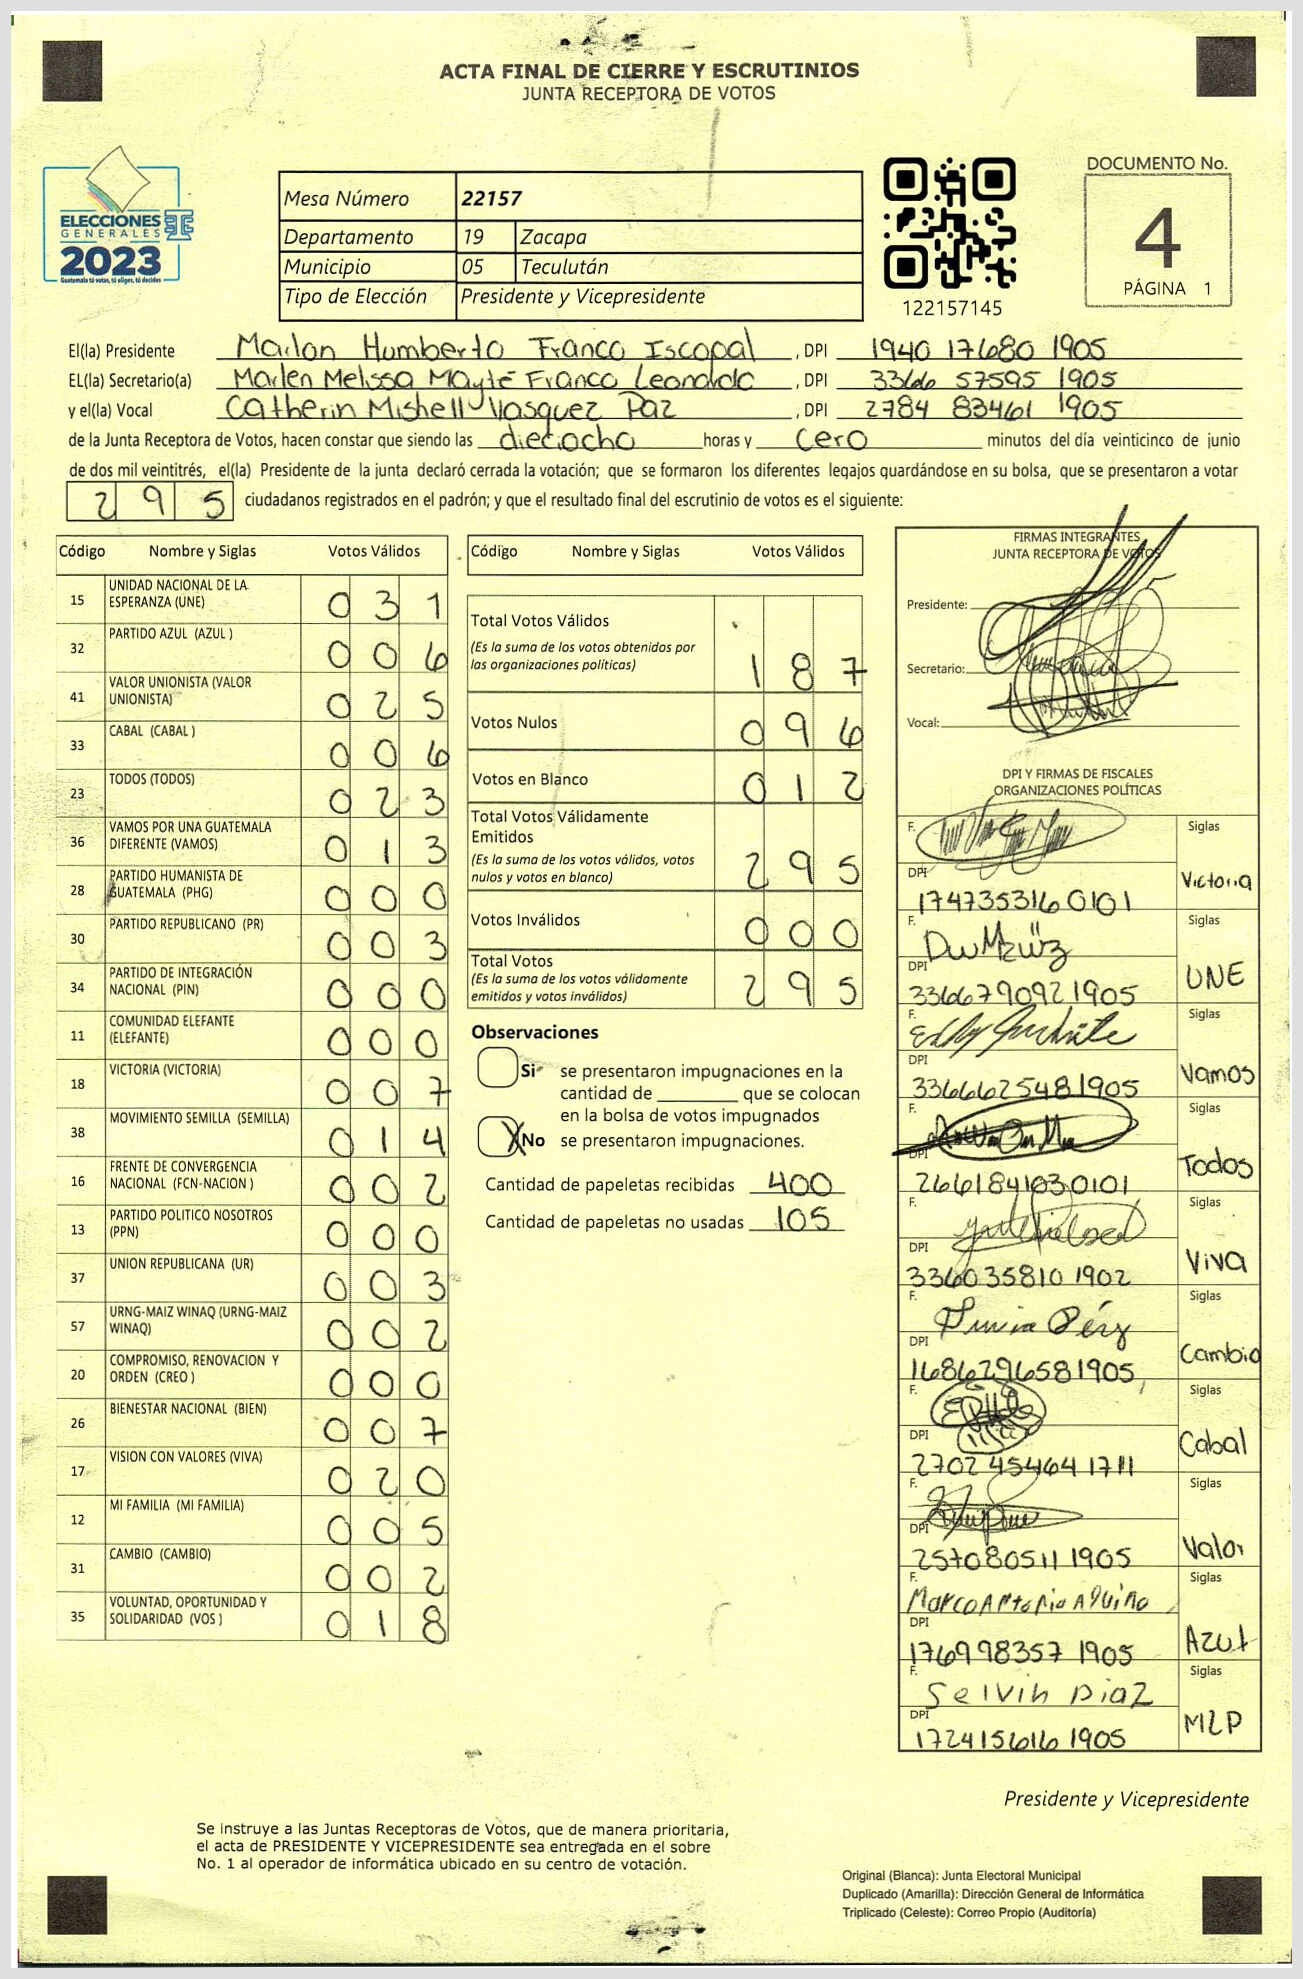 ACTA FINAL DE CIERRE Y ESCRUTINIOS
JUNTA RECEPTORA DE VOTOS
ELECCIONES
GENERALES
2023
Guatemala tú votas, tú eliges, tú decides
Mesa Número 22157
Departamento 19 Zacapa
Municipio 05 Teculután
Tipo de Elección Presidente y Vicepresidente
122157145
DOCUMENTO No.
4
PÁGINA 1
El(la) Presidente Marlon Humberto Franco Iscopal, DPI 1940 17680 1905
EL(la) Secretario(a) Marlen Melissa Mayté Franco Leonardo, DPI 3366 57595 1905
y el(la) Vocal Catherin Mishell Vasquez Paz, DPI 2784 83461 1905
de la Junta Receptora de Votos, hacen constar que siendo las dieciocho horas y cero minutos del día veinticinco de junio
de dos mil veintitrés, el(la) Presidente de la junta declaró cerrada la votación; que se formaron los diferentes legajos guardándose en su bolsa, que se presentaron a votar
295 ciudadanos registrados en el padrón; y que el resultado final del escrutinio de votos es el siguiente:
Código Nombre y Siglas Votos Válidos
15 UNIDAD NACIONAL DE LA ESPERANZA (UNE) 031
32 PARTIDO AZUL (AZUL ) 006
41 VALOR UNIONISTA (VALOR UNIONISTA) 025
33 CABAL (CABAL ) 006
23 TODOS (TODOS) 023
36 VAMOS POR UNA GUATEMALA DIFERENTE (VAMOS) 013
28 PARTIDO HUMANISTA DE GUATEMALA (PHG) 000
30 PARTIDO REPUBLICANO (PR) 003
34 PARTIDO DE INTEGRACIÓN NACIONAL (PIN) 000
11 COMUNIDAD ELEFANTE (ELEFANTE) 000
18 VICTORIA (VICTORIA) 007
38 MOVIMIENTO SEMILLA (SEMILLA) 014
16 FRENTE DE CONVERGENCIA NACIONAL (FCN-NACION ) 002
13 PARTIDO POLITICO NOSOTROS (PPN) 000
37 UNION REPUBLICANA (UR) 003
57 URNG-MAIZ WINAQ (URNG-MAIZ WINAQ) 002
20 COMPROMISO, RENOVACION Y ORDEN (CREO ) 000
26 BIENESTAR NACIONAL (BIEN) 007
17 VISION CON VALORES (VIVA) 020
12 MI FAMILIA (MI FAMILIA) 005
31 CAMBIO (CAMBIO) 002
35 VOLUNTAD, OPORTUNIDAD Y SOLIDARIDAD (VOS ) 018
Código Nombre y Siglas Votos Válidos
Total Votos Válidos 187
(Es la suma de los votos obtenidos por
las organizaciones políticas)
Votos Nulos 096
Votos en Blanco 012
Total Votos Válidamente
Emitidos 295
(Es la suma de los votos válidos, votos
nulos y votos en blanco)
Votos Inválidos 000
Total Votos 295
(Es la suma de los votos válidamente
emitidos y votos inválidos)
Observaciones
Si se presentaron impugnaciones en la
cantidad de ________ que se colocan
en la bolsa de votos impugnados
X No se presentaron impugnaciones.
Cantidad de papeletas recibidas 400
Cantidad de papeletas no usadas 105
FIRMAS INTEGRANTES
JUNTA RECEPTORA DE VOTOS
Presidente:
Secretario:
Vocal:
DPI Y FIRMAS DE FISCALES
ORGANIZACIONES POLÍTICAS
F. Siglas
DPI 1747353160101 Victoria
F. Siglas
DPI 3366790921905 UNE
F. Siglas
DPI 3366625481905 Vamos
F. Siglas
DPI 2661841030101 Todos
F. Siglas
DPI 336035810 1902 Viva
F. Siglas
DPI 1686296581905 Cambio
F. Siglas
DPI 2702 45464 1711 Cabal
F. Siglas
DPI 257080511 1905 Valor
F. Marco Antonio Aquino Siglas
DPI 176998357 1905 Azul
F. Selvin Diaz Siglas
DPI 172415616 1905 MLP
Presidente y Vicepresidente
Se instruye a las Juntas Receptoras de Votos, que de manera prioritaria,
el acta de PRESIDENTE Y VICEPRESIDENTE sea entregada en el sobre
No. 1 al operador de informática ubicado en su centro de votación.
Original (Blanca): Junta Electoral Municipal
Duplicado (Amarilla): Dirección General de Informática
Triplicado (Celeste): Correo Propio (Auditoría)